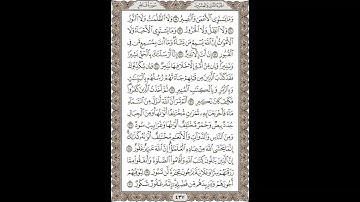 الجزء الثاني والعشرون سورة فاطر
وَمَا يَسْتَوِى ٱلْأَعْمَىٰ وَٱلْبَصِيرُ ١٩ وَلَا ٱلظُّلُمَٰتُ وَلَا ٱلنُّورُ
٢٠ وَلَا ٱلظِّلُّ وَلَا ٱلْحَرُورُ ٢١ وَمَا يَسْتَوِى ٱلْأَحْيَآءُ وَلَا
ٱلْأَمْوَٰتُ إِنَّ ٱللَّهَ يُسْمِعُ مَن يَشَآءُ وَمَآ أَنتَ بِمُسْمِعٍ مَّن فِى
ٱلْقُبُورِ ٢٢ إِنْ أَنتَ إِلَّا نَذِيرٌ ٢٣ إِنَّآ أَرْسَلْنَٰكَ بِٱلْحَقِّ بَشِيرًا
وَنَذِيرًا وَإِن مِّنْ أُمَّةٍ إِلَّا خَلَا فِيهَا نَذِيرٌ ٢٤ وَإِن يُكَذِّبُوكَ
فَقَدْ كَذَّبَ ٱلَّذِينَ مِن قَبْلِهِمْ جَآءَتْهُمْ رُسُلُهُم بِٱلْبَيِّنَٰتِ
وَبِٱلزُّبُرِ وَبِٱلْكِتَٰبِ ٱلْمُنِيرِ ٢٥ ثُمَّ أَخَذْتُ ٱلَّذِينَ كَفَرُوا۟
فَكَيْفَ كَانَ نَكِيرِ ٢٦ أَلَمْ تَرَ أَنَّ ٱللَّهَ أَنزَلَ مِنَ ٱلسَّمَآءِ مَآءً
فَأَخْرَجْنَا بِهِۦ ثَمَرَٰتٍ مُّخْتَلِفًا أَلْوَٰنُهَا وَمِنَ ٱلْجِبَالِ
جُدَدٌۢ بِيضٌ وَحُمْرٌ مُّخْتَلِفٌ أَلْوَٰنُهَا وَغَرَابِيبُ سُودٌ ٢٧
وَمِنَ ٱلنَّاسِ وَٱلدَّوَآبِّ وَٱلْأَنْعَٰمِ مُخْتَلِفٌ أَلْوَٰنُهُۥ كَذَٰلِكَ
إِنَّمَا يَخْشَى ٱللَّهَ مِنْ عِبَادِهِ ٱلْعُلَمَٰٓؤُا۟ إِنَّ ٱللَّهَ عَزِيزٌ غَفُورٌ ٢٨
إِنَّ ٱلَّذِينَ يَتْلُونَ كِتَٰبَ ٱللَّهِ وَأَقَامُوا۟ ٱلصَّلَوٰةَ وَأَنفَقُوا۟ مِمَّا
رَزَقْنَٰهُمْ سِرًّا وَعَلَانِيَةً يَرْجُونَ تِجَٰرَةً لَّن تَبُورَ ٢٩ لِيُوَفِّيَهُمْ
أُجُورَهُمْ وَيَزِيدَهُم مِّن فَضْلِهِۦٓ إِنَّهُۥ غَفُورٌ شَكُورٌ ٣٠
٤٣٧